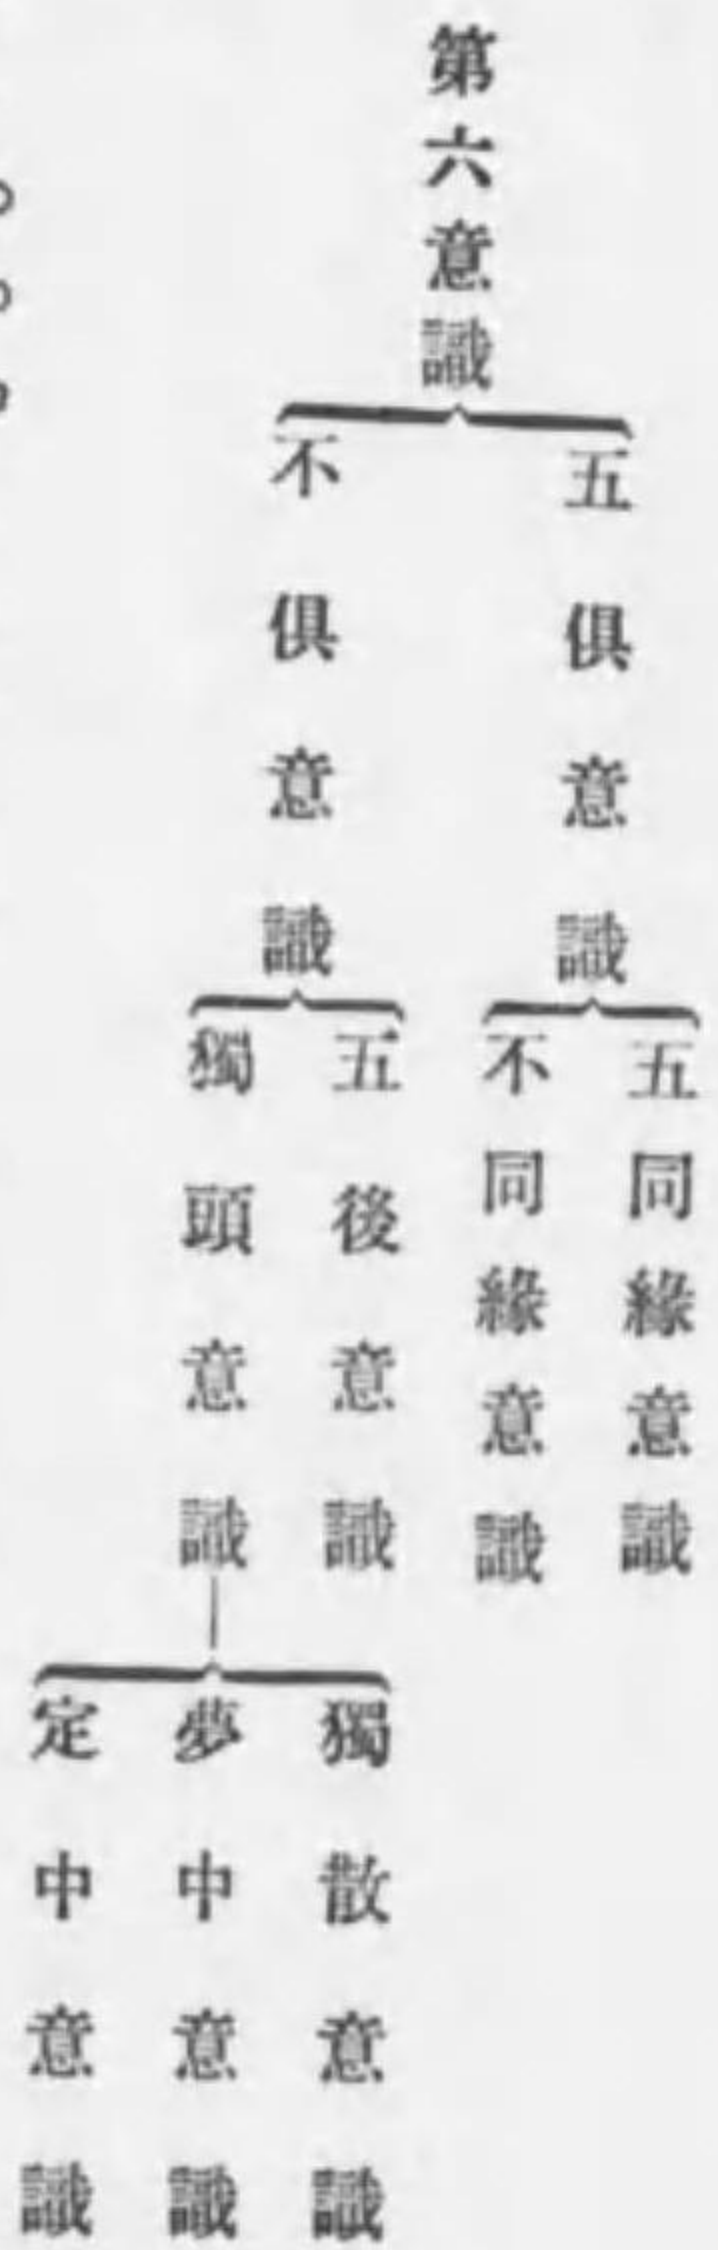 第六意識
五俱意識
五同緣意識
不同緣意識
不俱意識
五後意識
獨頭意識
獨散意識
夢中意識
定中意識